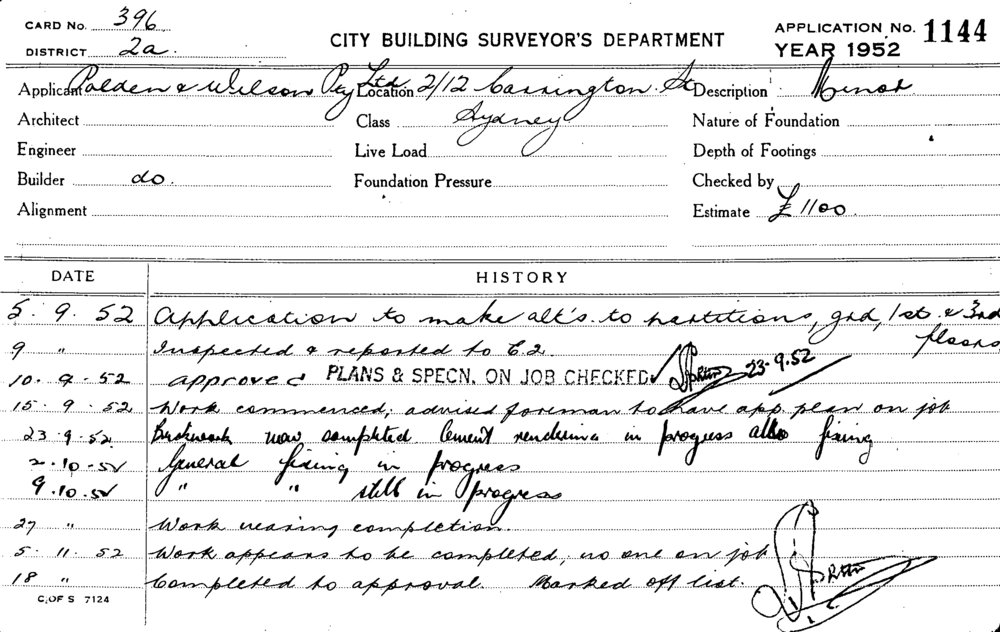 CARD No. 396
DISTRICT 2a.
CITY BUILDING SURVEYOR'S DEPARTMENT
APPLICATION No. 1144
YEAR 1952
Applicant Polden & Wilson Pty Ltd Location 2/12 Carrington St Description Minor
Architect Class Sydney Nature of Foundation
Engineer Live Load Depth of Footings
Builder do. Foundation Pressure Checked by
Alignment Estimate £1100
DATE HISTORY
5. 9. 52 Application to make alt's. to partitions, grd, 1st. & 3rd floors
9 " Inspected & reported to C.2.
10. 9. 52 approved PLANS & SPECN. ON JOB CHECKED 23.9.52
15. 9. 52 Work commenced; advised foreman to have app. plan on job
23.9.52. Brickwork now completed cement rendering in progress also fixing
2.10.52 General fixing in progress
9.10.52 " " still in progress
27 " Work nearing completion.
5. 11. 52 Work appears to be completed; no one on job
18 " Completed to approval. Marked off list.
C. OF S 7124